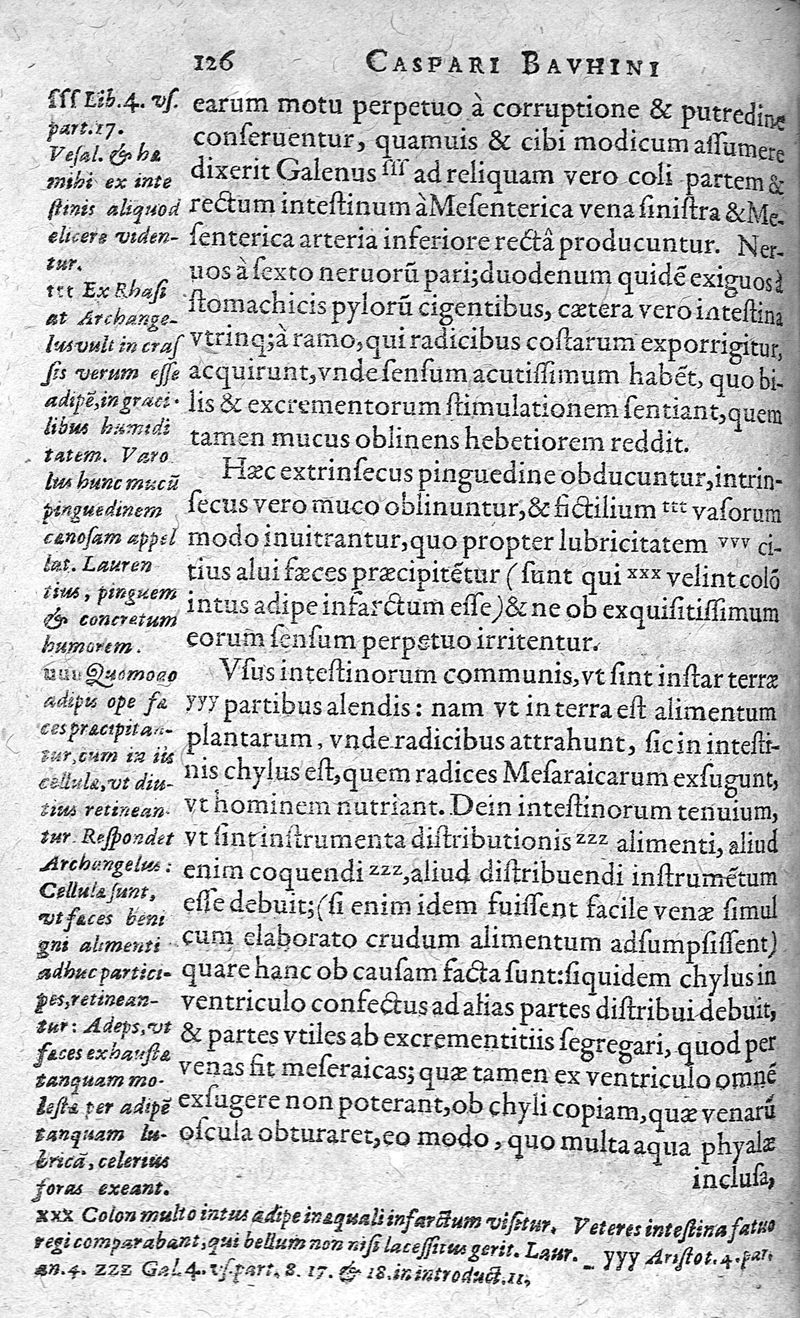 126 CASPARI BAVHINI
earum motu perpetuo à corruptione & putredine
conſeruentur, quamuis & cibi modicum aſſumere
dixerit Galenus ſſſ ad reliquam vero coli partem &
rectum inteſtinum à Meſenterica vena ſiniſtra & Me-
ſenterica arteria inferiore rectâ producuntur. Ner-
uos à ſexto neruorũ pari; duodenum quidẽ exiguos à
ſtomachicis pylorũ cigentibus, cætera vero inteſtina
vtrinq; à ramo, qui radicibus coſtarum exporrigitur,
acquirunt, vnde ſenſum acutiſſimum habẽt, quo bi-
lis & excrementorum ſtimulationem ſentiant, quem
tamen mucus oblinens hebetiorem reddit.
Hæc extrinſecus pinguedine obducuntur, intrin-
ſecus vero muco oblinuntur, & fictilium ttt vaſorum
modo inuitrantur, quo propter lubricitatem vvv ci-
tius alui fæces præcipitẽtur (ſunt qui xxx velint colõ
intus adipe infarctum eſſe) & ne ob exquiſitiſſimum
eorum ſenſum perpetuo irritentur.
Vſus inteſtinorum communis, vt ſint inſtar terræ
yyy partibus alendis: nam vt in terra eſt alimentum
plantarum, vnde radicibus attrahunt, ſic in inteſti-
nis chylus eſt, quem radices Meſaraicarum exſugunt,
vt hominem nutriant. Dein inteſtinorum tenuium,
vt ſint inſtrumenta diſtributionis zzz alimenti, aliud
enim coquendi zzz, aliud diſtribuendi inſtrumẽtum
eſſe debuit; (ſi enim idem fuiſſent facile venæ ſimul
cum elaborato crudum alimentum adſumpſiſſent)
quare hanc ob cauſam facta ſunt: ſiquidem chylus in
ventriculo confectus ad alias partes diſtribui debuit,
& partes vtiles ab excrementitiis ſegregari, quod per
venas fit meſeraicas; quæ tamen ex ventriculo omnẽ
exſugere non poterant, ob chyli copiam, quæ venarũ
oſcula obturaret, eo modo, quo multa aqua phyalæ
incluſa,
ſſſ Lib. 4. vſ.
part. 17.
Veſal. & hæ
mihi ex inte
ſtinis aliquod
elicere viden-
tur.
ttt Ex Rhaſi
at Archange-
lus vult in craſ
ſis verum eſſe
adipẽ, in graci-
libus humidi
tatem. Varo
lus hunc mucũ
pinguedinem
cænoſam appel
lat. Lauren
tius, pinguem
& concretum
humorem.
uuu Quomodo
adipis ope fæ
ces præcipitan-
tur, cum in iis
cellulæ, vt diu-
tius retinean-
tur. Reſpondet
Archangelus:
Cellulæ ſunt,
vt fæces beni
gni alimenti
adhuc partici-
pes, retinean-
tur: Adeps, vt
fæces exhauſtæ
tanquam mo-
leſtæ per adipẽ
tanquam lu-
bricã, celerius
foras exeant.
xxx Colon multo intus adipe inæquali infarctum viſitur. Veteres inteſtina fatuo
regi comparabant, qui bellum non niſi laceſſitus gerit. Laur. yyy Ariſtot. 4. par.
an. 4. zzz Gal. 4. vſ. part. 8. 17. & 18. in introduct. 11.